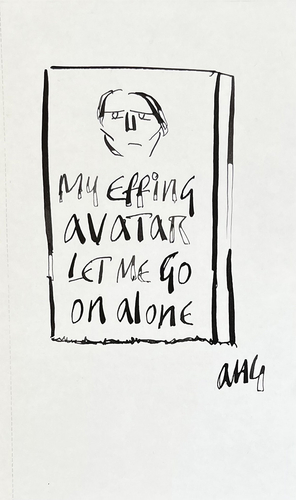 My Effing
AVATAR
LET ME GO
on alone